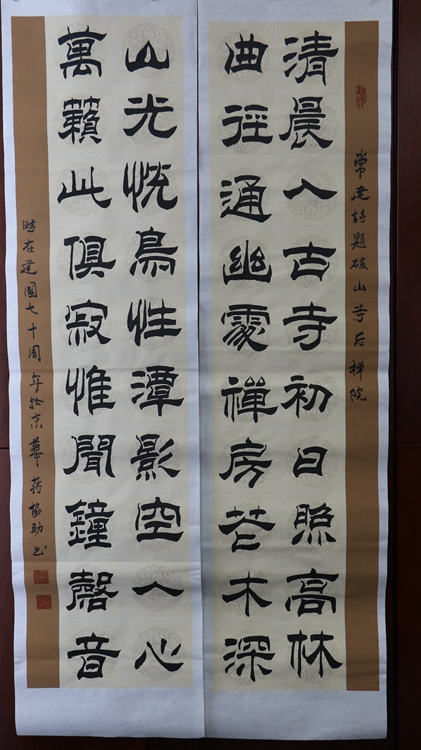 常建詩題破山寺后禅院
清晨入古寺初日照高林
曲徑通幽處禪房花木深
山光悦鳥性潭影空人心
萬籟此俱寂惟聞鐘磬音
時在建國七十周年於京華蒋協助书